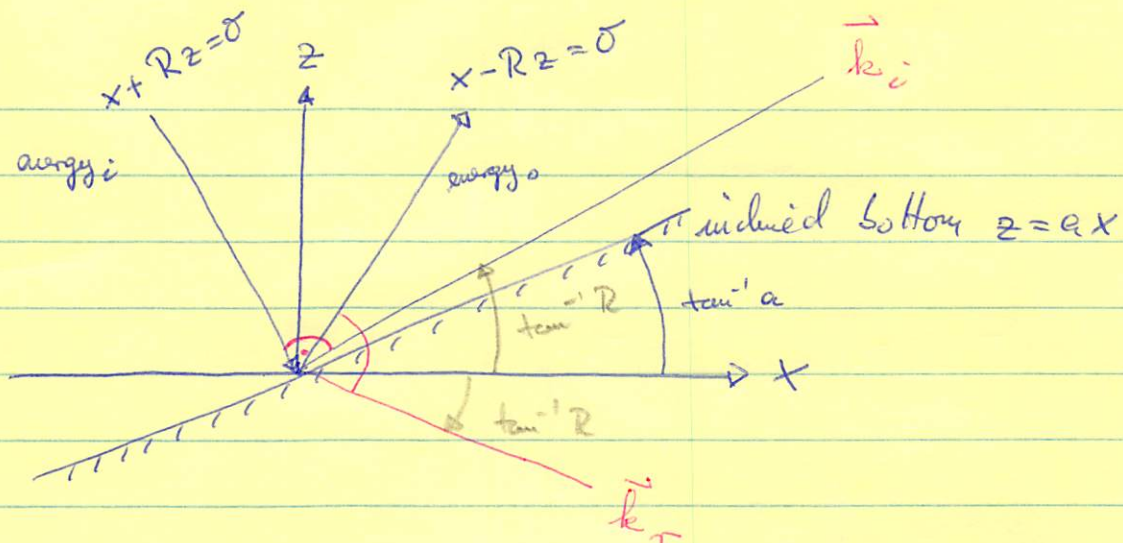 x+Rz=0
z
x-Rz=0
k⃗ i
energy i
energy o
inclined bottom z = a x
tan⁻¹ R
tan⁻¹ a
x
tan⁻¹ R
k⃗ r